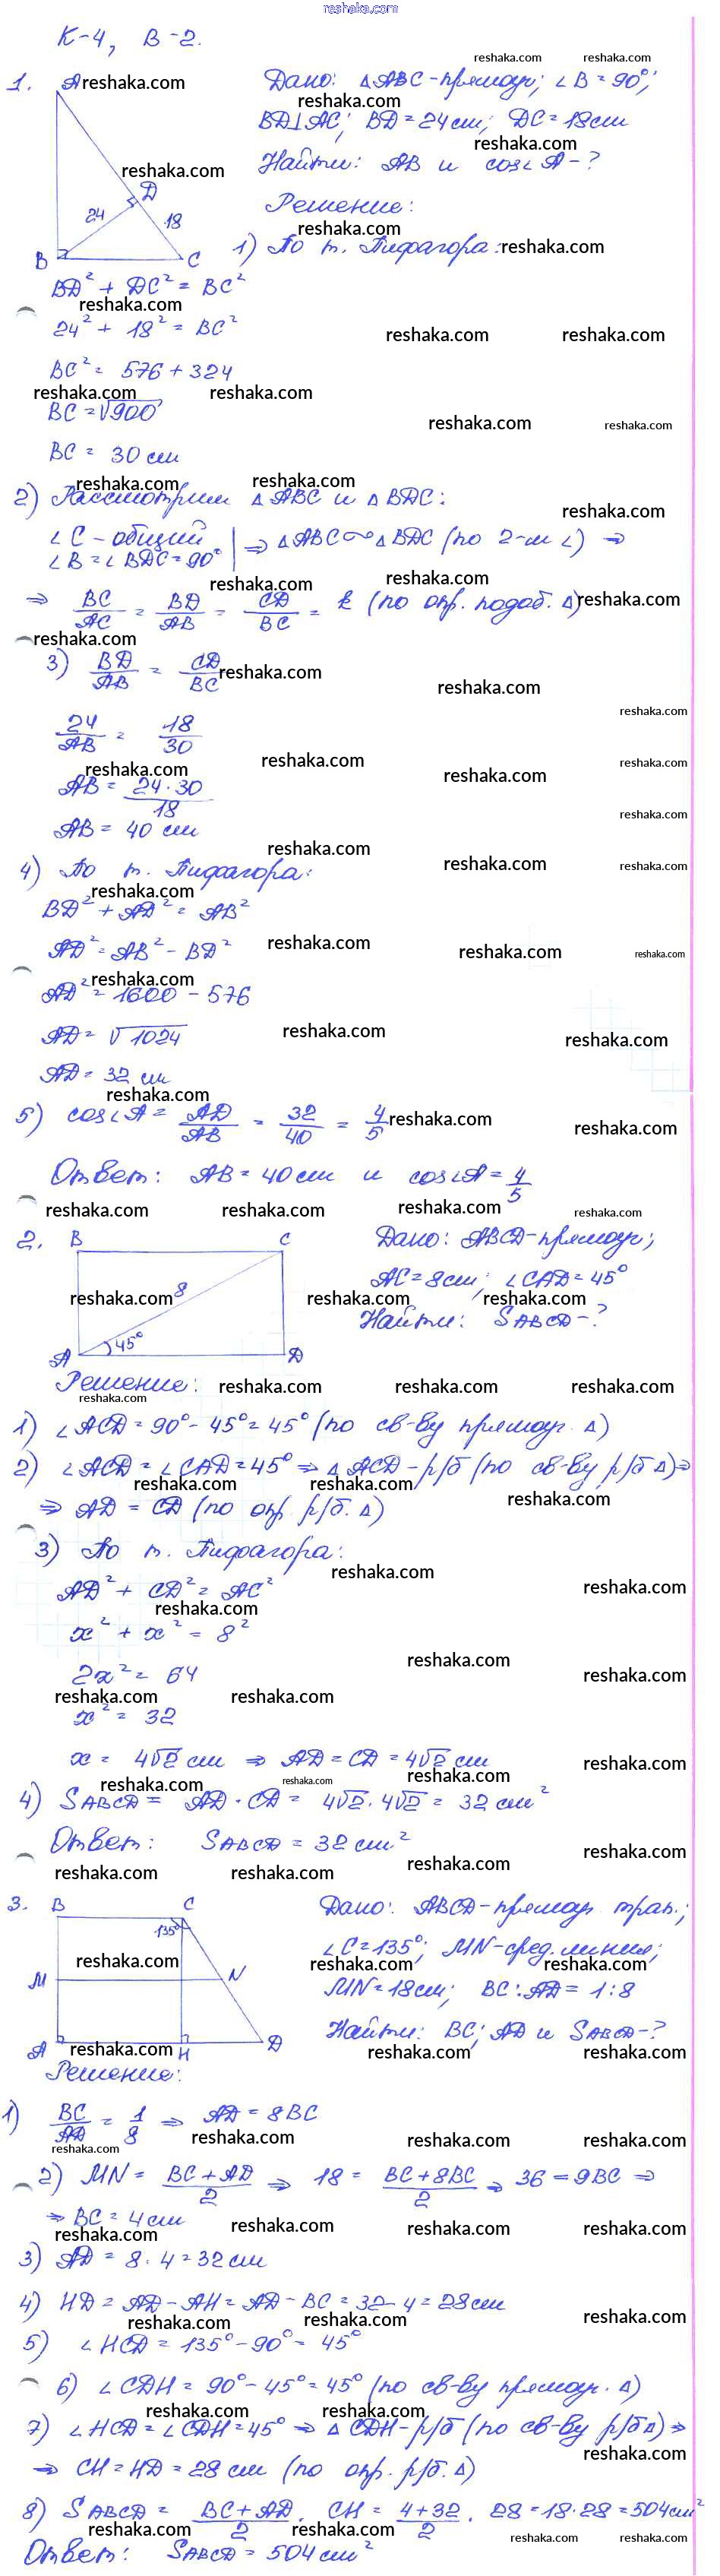 reshaka.com
К-4, В-2.
1.
A
D
24
18
B
C
Дано: △ABC-прямоуг; ∠B=90°;
BD⊥AC; BD=24см; DC=18см
Найти: AB и cos∠A-?
Решение:
1) По т. Пифагора:
BD² + DC² = BC²
24² + 18² = BC²
BC² = 576 + 324
BC = √900
BC = 30 см
2) Рассмотрим △ABC и △BDC:
∠C - общий
∠B = ∠BDC = 90° | ⇒ △ABC ∾ △BDC (по 2-м ∠) ⇒
⇒ BC/AC = BD/AB = CD/BC = k (по опр. подоб. △)
3) BD/AB = CD/BC
24/AB = 18/30
AB = 24·30/18
AB = 40 см
4) По т. Пифагора:
BD² + AD² = AB²
AD² = AB² - BD²
AD² = 1600 - 576
AD = √1024
AD = 32 см
5) cos∠A = AD/AB = 32/40 = 4/5
Ответ: AB = 40 см и cos∠A = 4/5
2.
B
C
8
45°
A
D
Дано: ABCD-прямоуг;
AC = 8см; ∠CAD = 45°
Найти: SABCD-?
Решение:
1) ∠ACD = 90° - 45° = 45° (по св-ву прямоуг. △)
2) ∠ACD = ∠CAD = 45° ⇒ △ACD - р/б (по св-ву р/б △) ⇒
⇒ AD = CD (по опр. р/б. △)
3) По т. Пифагора:
AD² + CD² = AC²
x² + x² = 8²
2x² = 64
x² = 32
x = 4√2 см ⇒ AD = CD = 4√2 см
4) SABCD = AD · CD = 4√2 · 4√2 = 32 см²
Ответ: SABCD = 32 см²
3.
B
C
135°
M
N
A
H
D
Дано: ABCD-прямоуг. трап.;
∠C = 135°; MN-сред. линия;
MN = 18см; BC:AD = 1:8
Найти: BC; AD и SABCD-?
Решение:
1) BC/AD = 1/8 ⇒ AD = 8BC
2) MN = BC + AD/2 ⇒ 18 = BC + 8BC/2 ⇒ 36 = 9BC ⇒
⇒ BC = 4см
3) AD = 8 · 4 = 32 см
4) HD = AD - AH = AD - BC = 32 - 4 = 28см
5) ∠HCD = 135° - 90° = 45°
6) ∠CDH = 90° - 45° = 45° (по св-ву прямоуг. △)
7) ∠HCD = ∠CDH = 45° ⇒ △CDH - р/б (по св-ву р/б △) ⇒
⇒ CH = HD = 28 см (по опр. р/б. △)
8) SABCD = BC + AD/2 · CH = 4+32/2 · 28 = 18·28 = 504см²
Ответ: SABCD = 504 см²